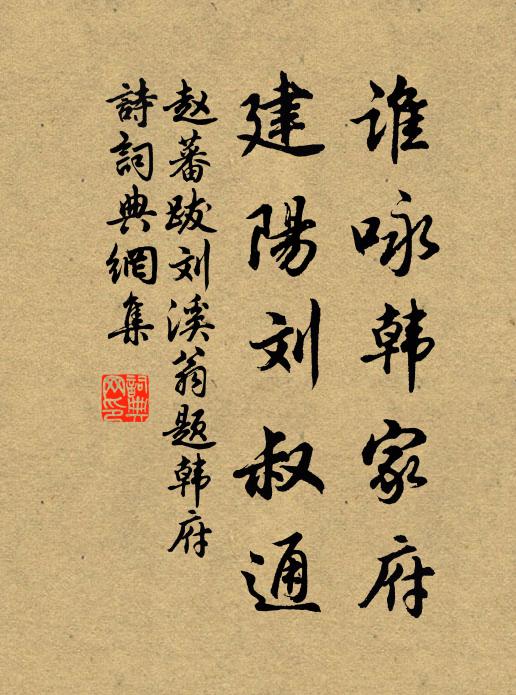 谁咏韩家府
建陽刘叔通
赵蕃跋刘溪翁题韩府
詩詞典網集
詞典
网印